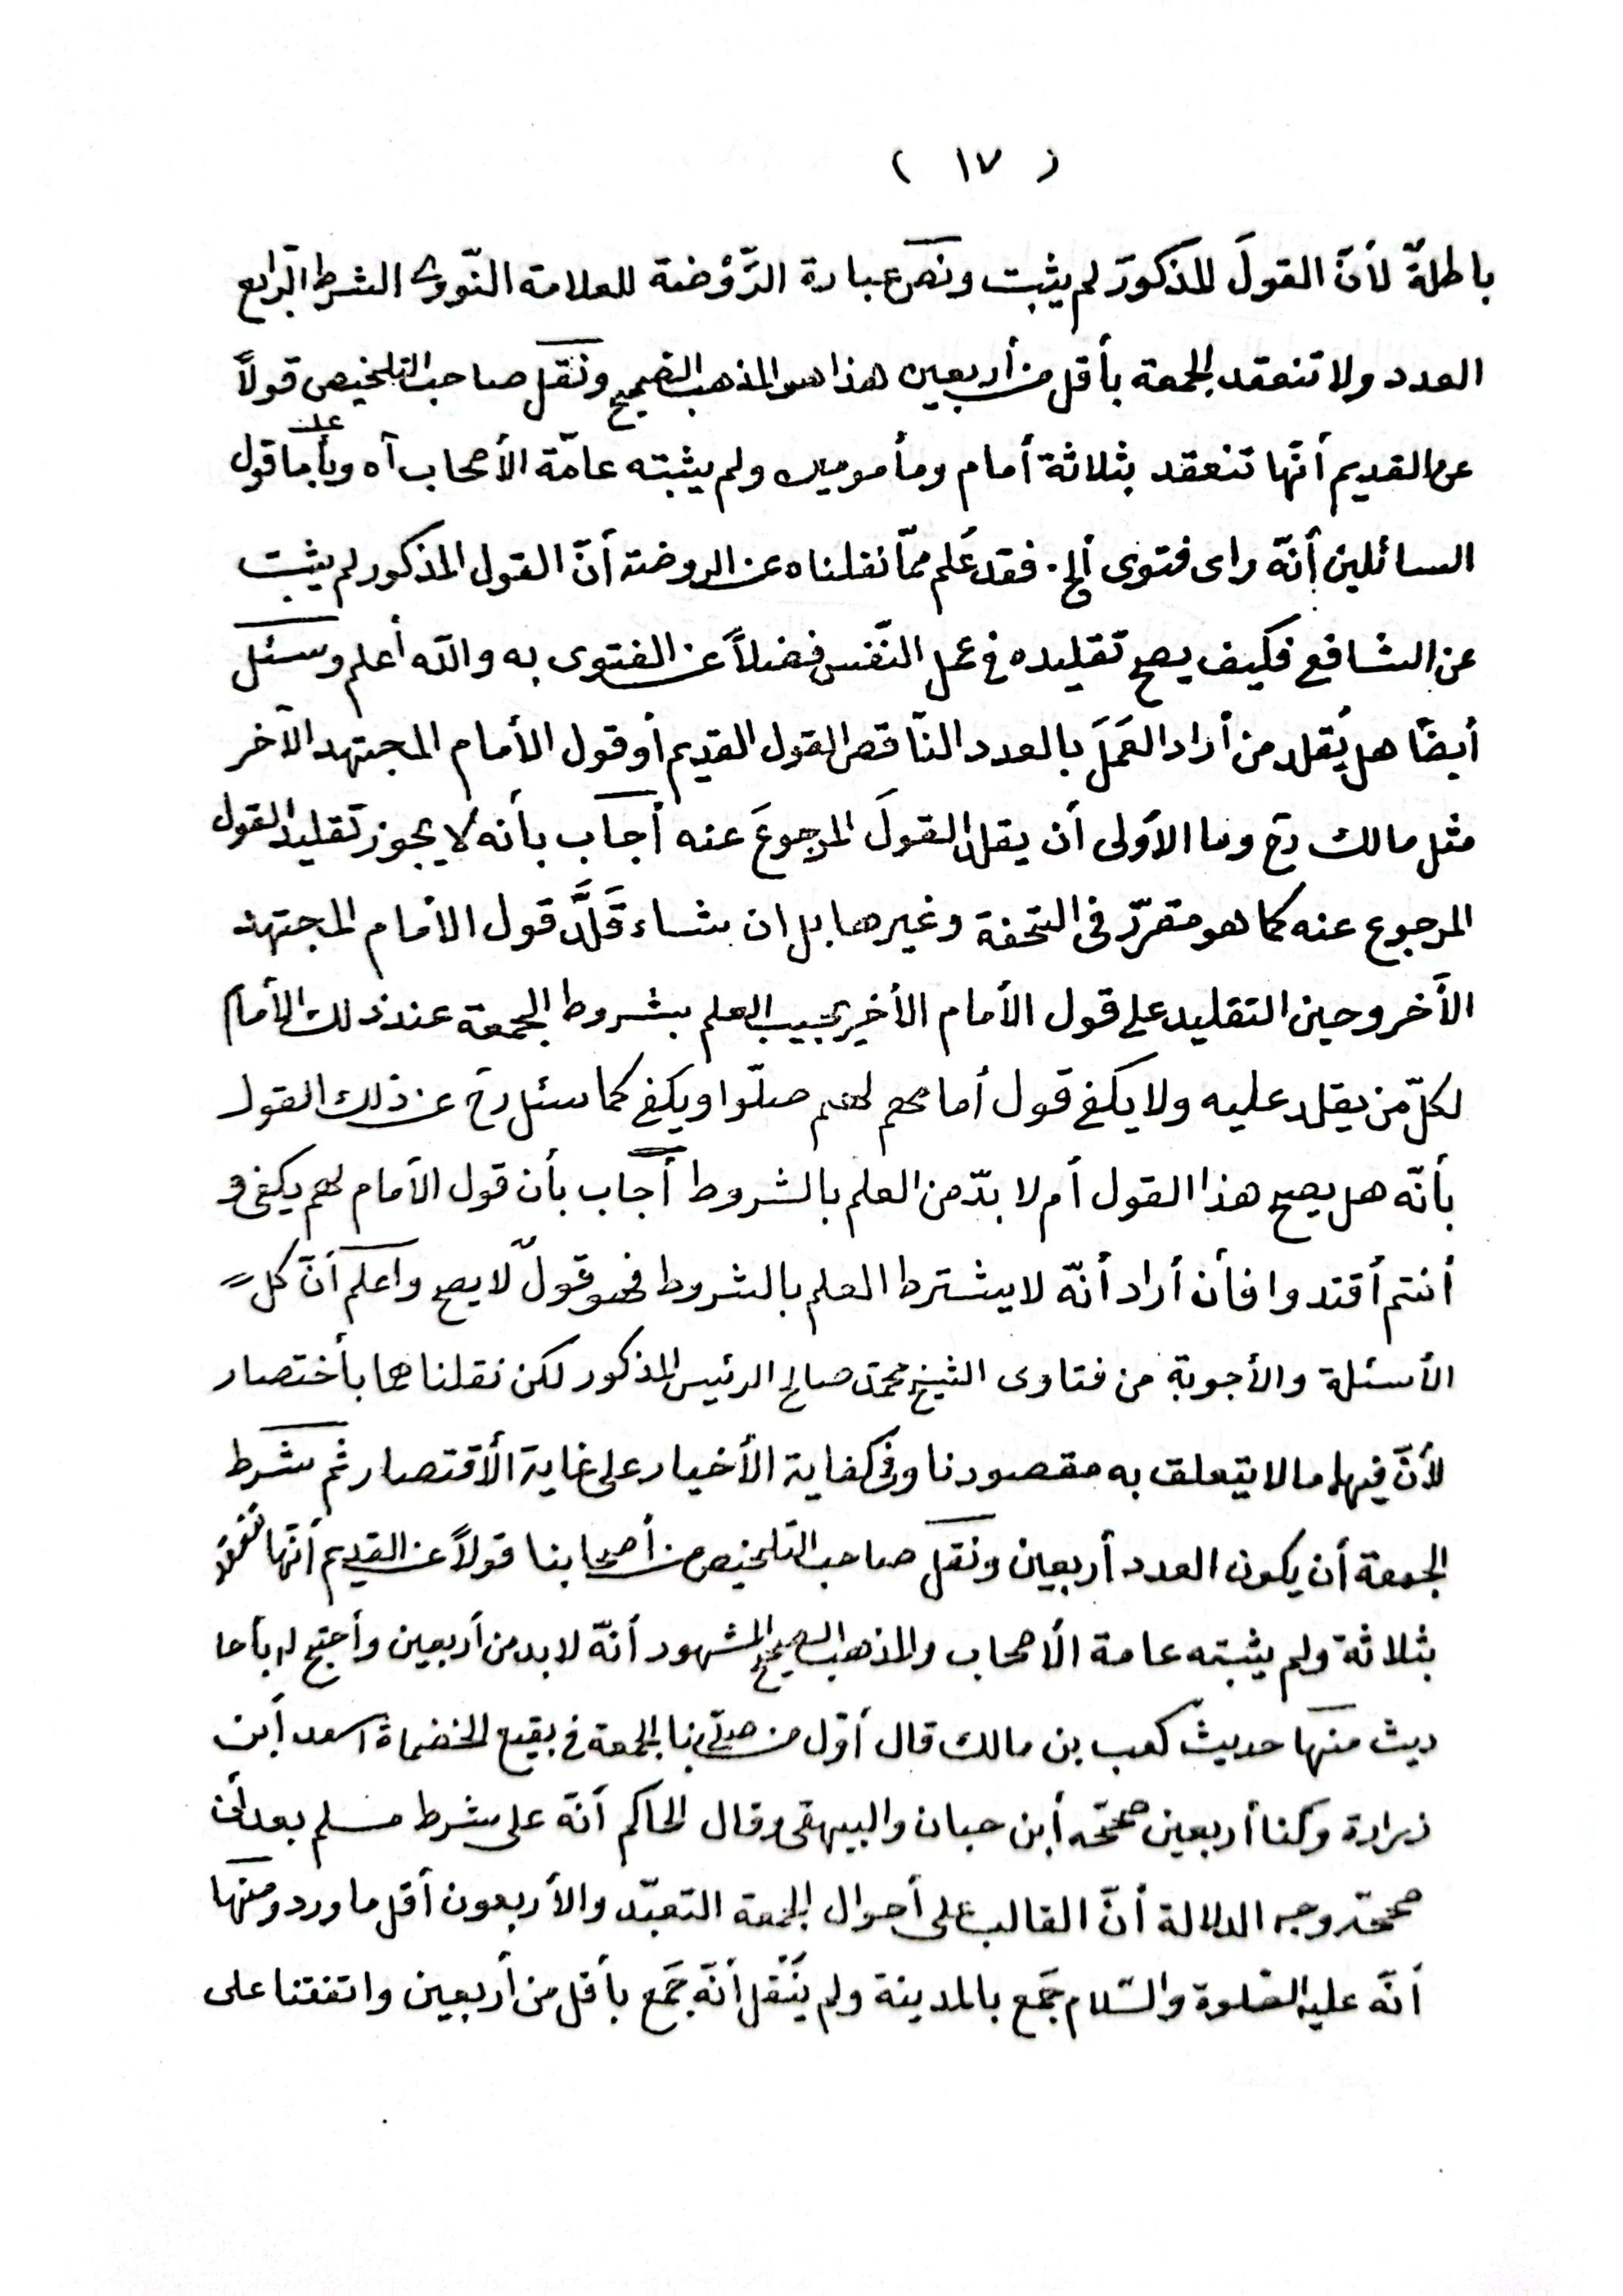 ( ١٧ )
باطلةٌ لأنّ القولَ المذكورَ لم يثبت ونصّ عبارة الرَّوْضة للعلامة النّووى الشرط الرّابع
العدد ولا تنعقد الجمعة بأقل من أربعين هذا هو المذهب الصحيح ونقل صاحب التلخيص قولاً
عن القديم أنّها تنعقد بثلاثة أمام ومأمومين ولم يثبته عامّة الأصحاب آه وبأما قول
السائلين أنّه راى فتوى ألخ. فقد عُلم ممّا نقلناه عن الروضة أنّ القول المذكور لم يثبت
عن الشافعى فكيف يصح تقليده فى عمل النّفس فضلاً عن الفتوى به والله أعلم وسئل
أيضًا هل يُقلد من أراد العَمَلَ بالعدد النّاقص القول القديم أو قول الأمام المجتهد الآخر
مثل مالك رح وما الأولى أن يقلد القولَ المرجوعَ عنه أجاب بأنه لا يجوز تقليد القول
المرجوع عنه كما هو مقرّر فى التحفة وغيرها بل ان شاء قَلَّدَ قول الامام المجتهد
الأخر وحين التقليد على قول الأمام الأخير يجيب العلم بشروط الجمعة عند ذلك الأمام
لكلّ من يقلد عليه ولا يكفى قول أمامهم لهم صلّوا ويكفى كما سئل رح عن ذلك القول
بأنّه هل يصح هذا القول أم لا بدّ من العلم بالشروط أجاب بأن قول الأمام لهم يكفى و
أنتم أقتدوا فأن أراد أنّه لا يشترط العلم بالشروط فهو قولٌ لا يصح واعلم أنّ كل
الأسئلة والأجوبة من فتاوى الشيخ محمد صالح الرئيس المذكور لكن نقلناهما بأختصار
لأنّ فيهما ما لا يتعلق به مقصودنا وفى كفاية الأخيار على غاية الأقتصار ثم شرط
الجمعة أن يكون العدد أربعين ونقل صاحب التلخيص من أصحابنا قولاً عن القديم أنّها تنعقد
بثلاثة ولم يثبته عامة الأصحاب والمذهب الصحيح المشهور أنّه لا بد من أربعين وأحتج له بأحا
ديث منها حديث كعب بن مالك قال أوّل من صلّى بنا الجمعة فى بقيع الخضماة اسعد أبن
زرارة وكنا أربعين صححّه أبن حبان والبيهقى وقال الحاكم أنّه على شرط مسلم بعد أن
صححّه وجه الدلالة أنّ الغالب على أحوال الجمعة التعبّد والأربعون أقل ما ورد ومنها
أنّه عليه الصّلوة والسّلام جَمّع بالمدينة ولم يُنْقل أنّه جَمّع بأقل من أربعين واتفقنا على